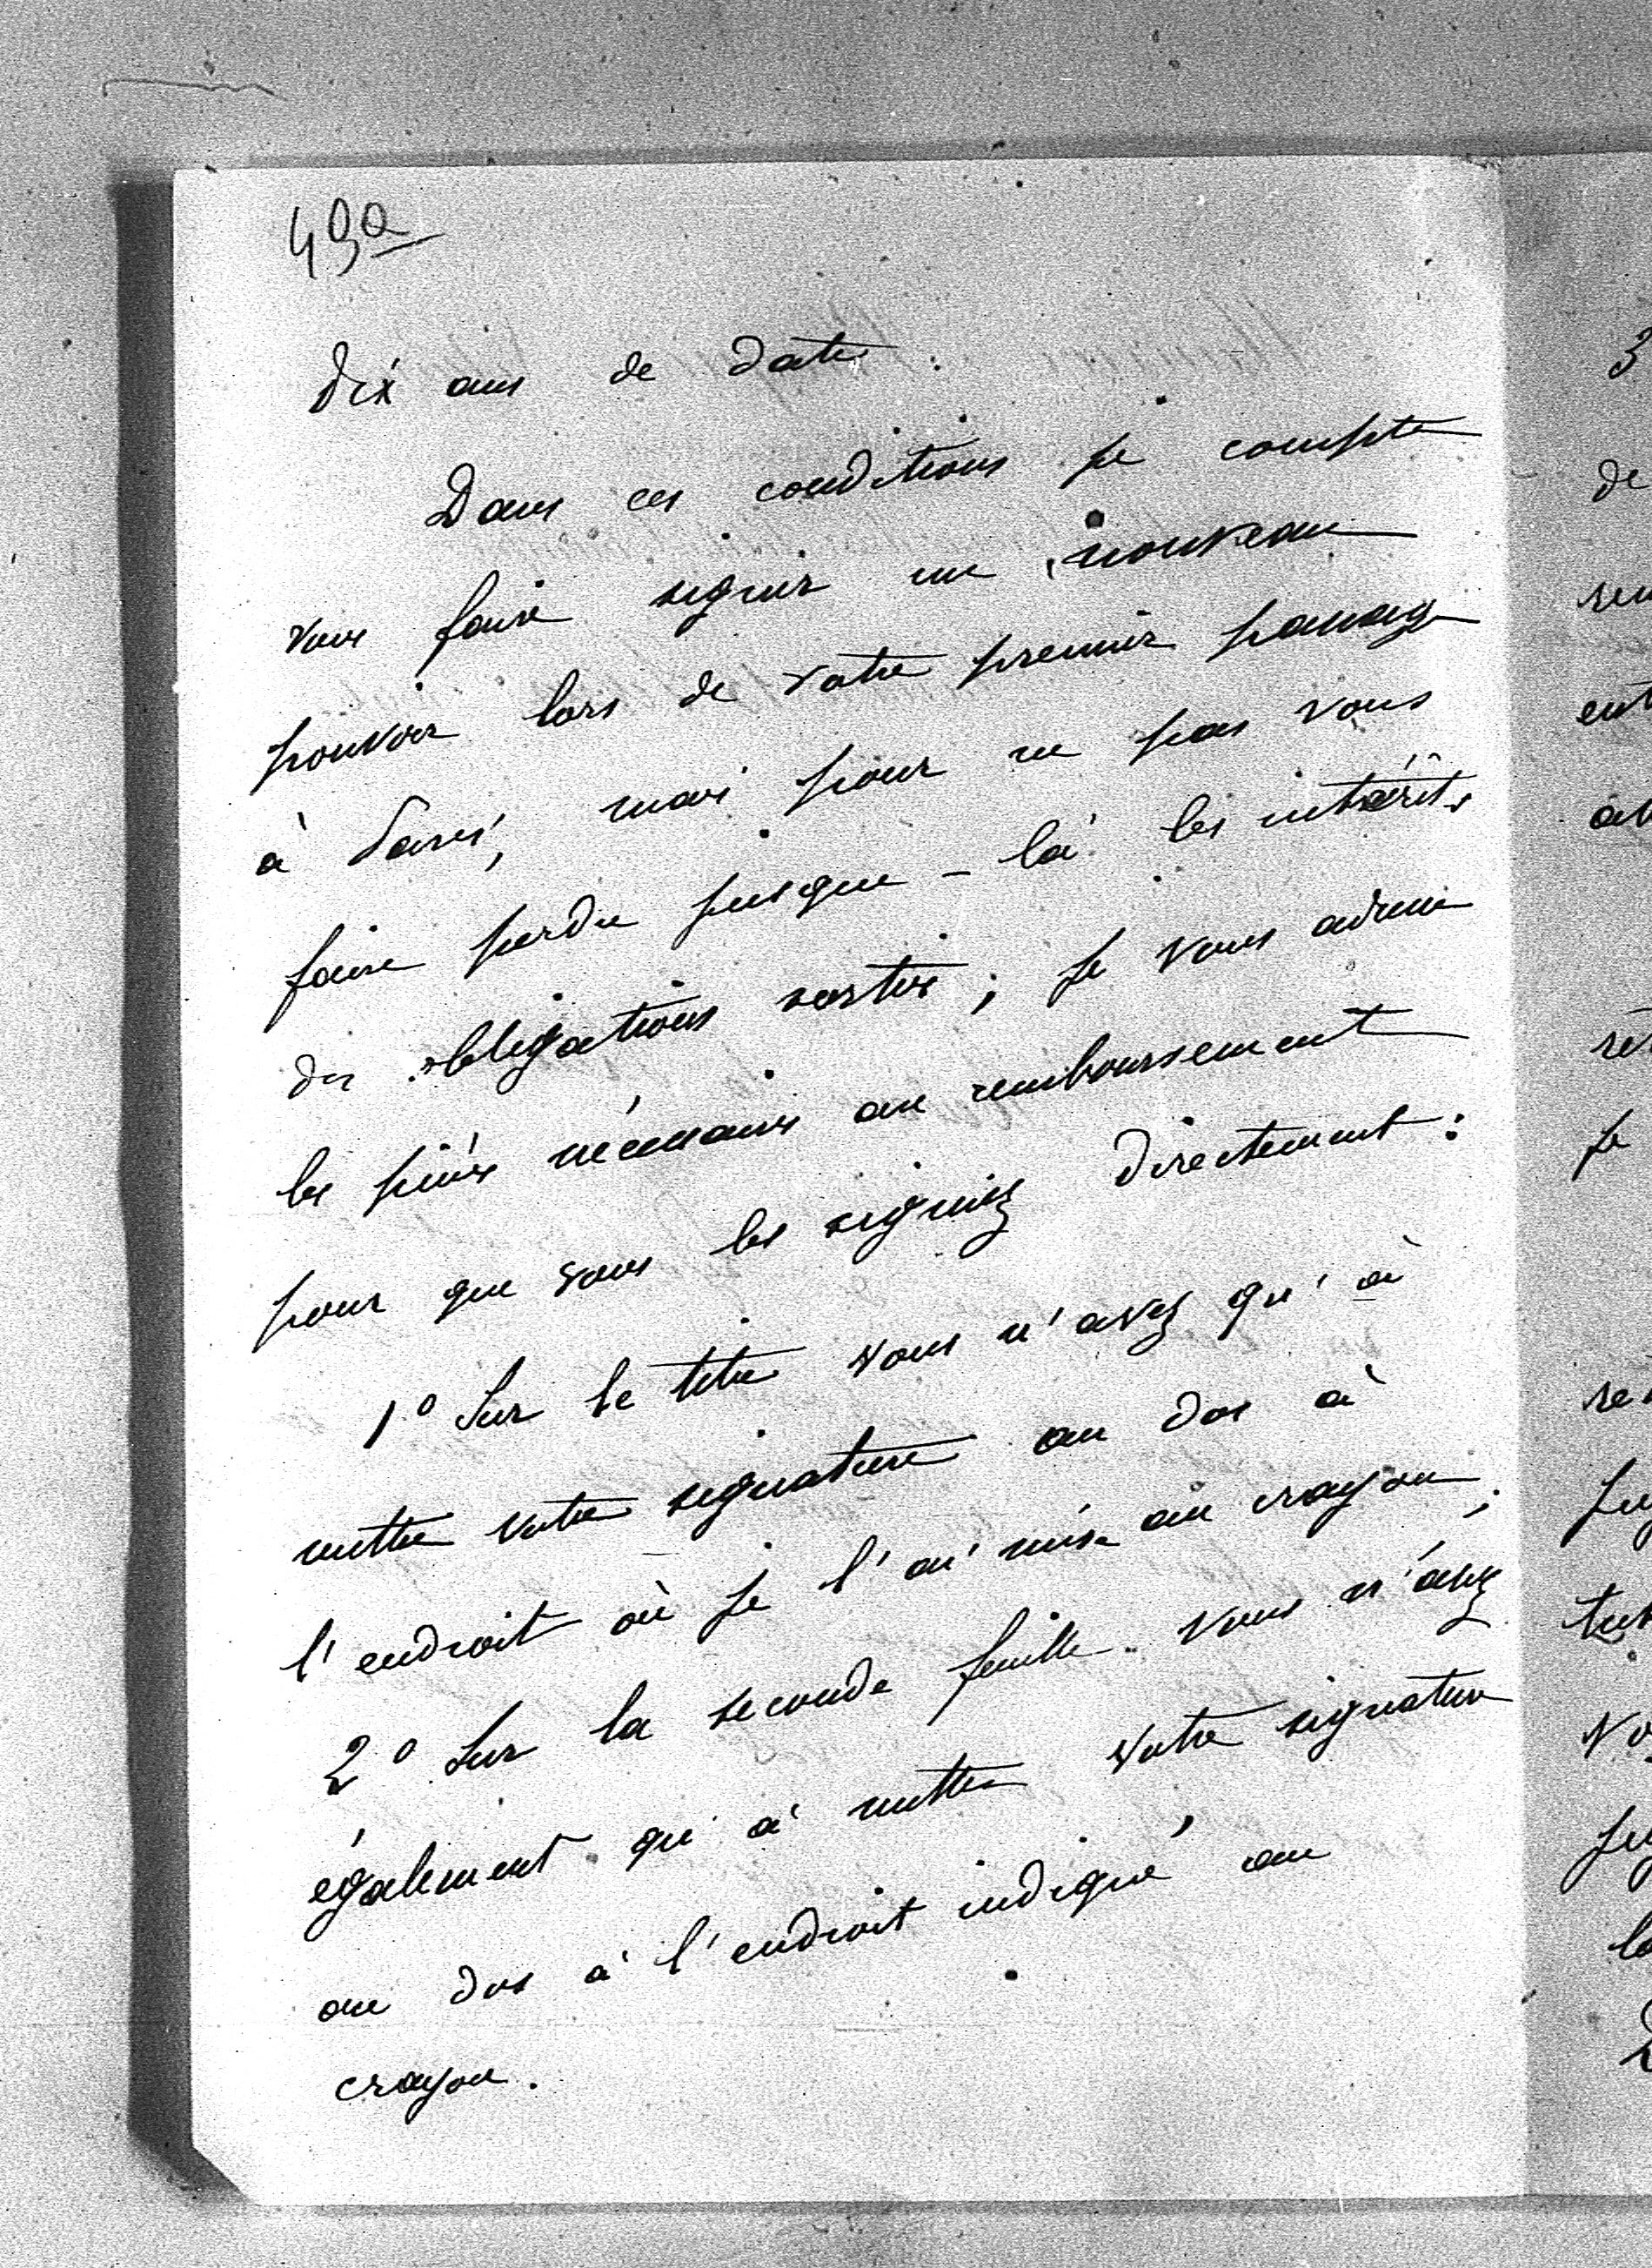 49a
dix ans de date.
Dans ces conditions je compte
vous faire signer un nouveau
pouvoir lors de votre premier passage
à Paris, mais pour ne pas vous
faire perdre jusque-là les intérêts
des obligations sorties, je vous adresse
les pièces nécessaires au remboursement
pour que vous les signiez directement :
1° Sur le titre vous n'avez qu'à
mettre votre signature au dos à
l'endroit où je l'ai mise au crayon ;
2° Sur la seconde feuille vous n'avez
également qu'à mettre votre signature
au dos à l'endroit indiqué au
crayon.
3
de
je